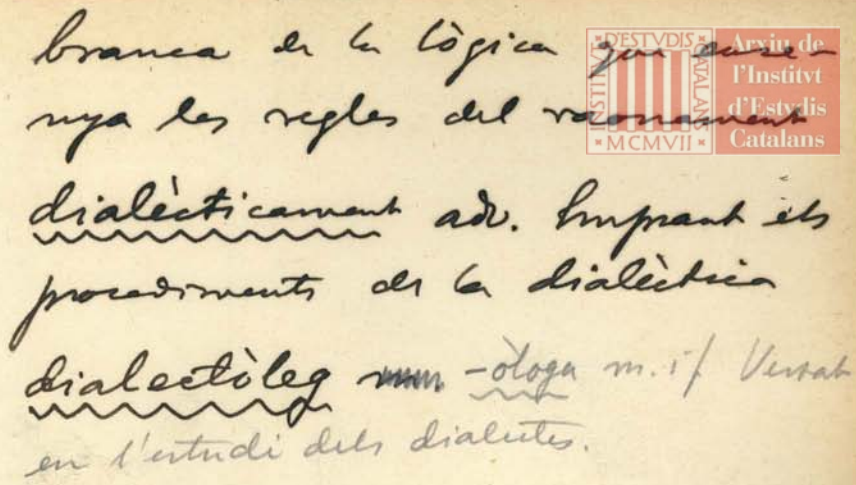 branca de la lògica que ense-
nya les regles del raonament
dialècticament adv. Emprant els
procediments de la dialèctica
dialectòleg -òloga m. i f. Versat
en l'estudi dels dialectes.
INSTITVT D'ESTVDIS CATALANS
MCMVII
Arxiu de
l'Institvt
d'Estvdis
Catalans